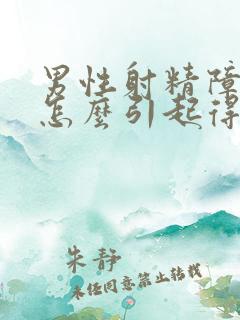 男性射精障
怎麼引起得
朱静
未经同意禁止转载